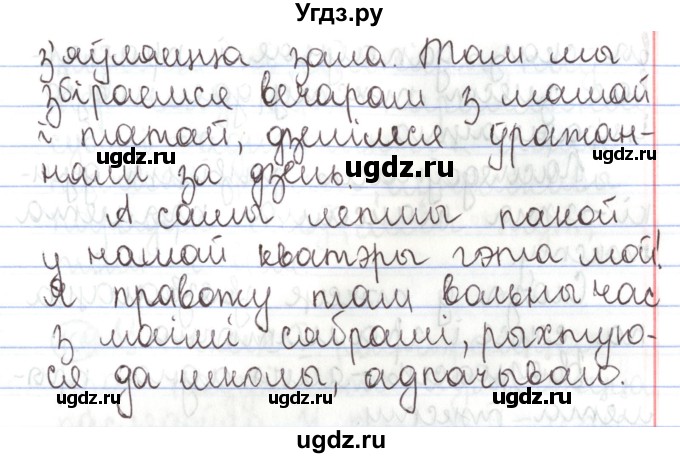 Угдз.ру
з'яўляецца зала. Там мы
збіраемся вечарам з мамай
і татай, дзелімся ўражан-
ugdz.ru ugdz.ru ugdz.ru
нямі за дзень.
А самы лепшы пакой
у нашай кватэры гэта мой!
Я правожу там вольны час
з маімі сябрамі, рыхтую-
ся да школы, адпачываю.
ugdz.ru ugdz.ru ugdz.ru
ugdz.ru